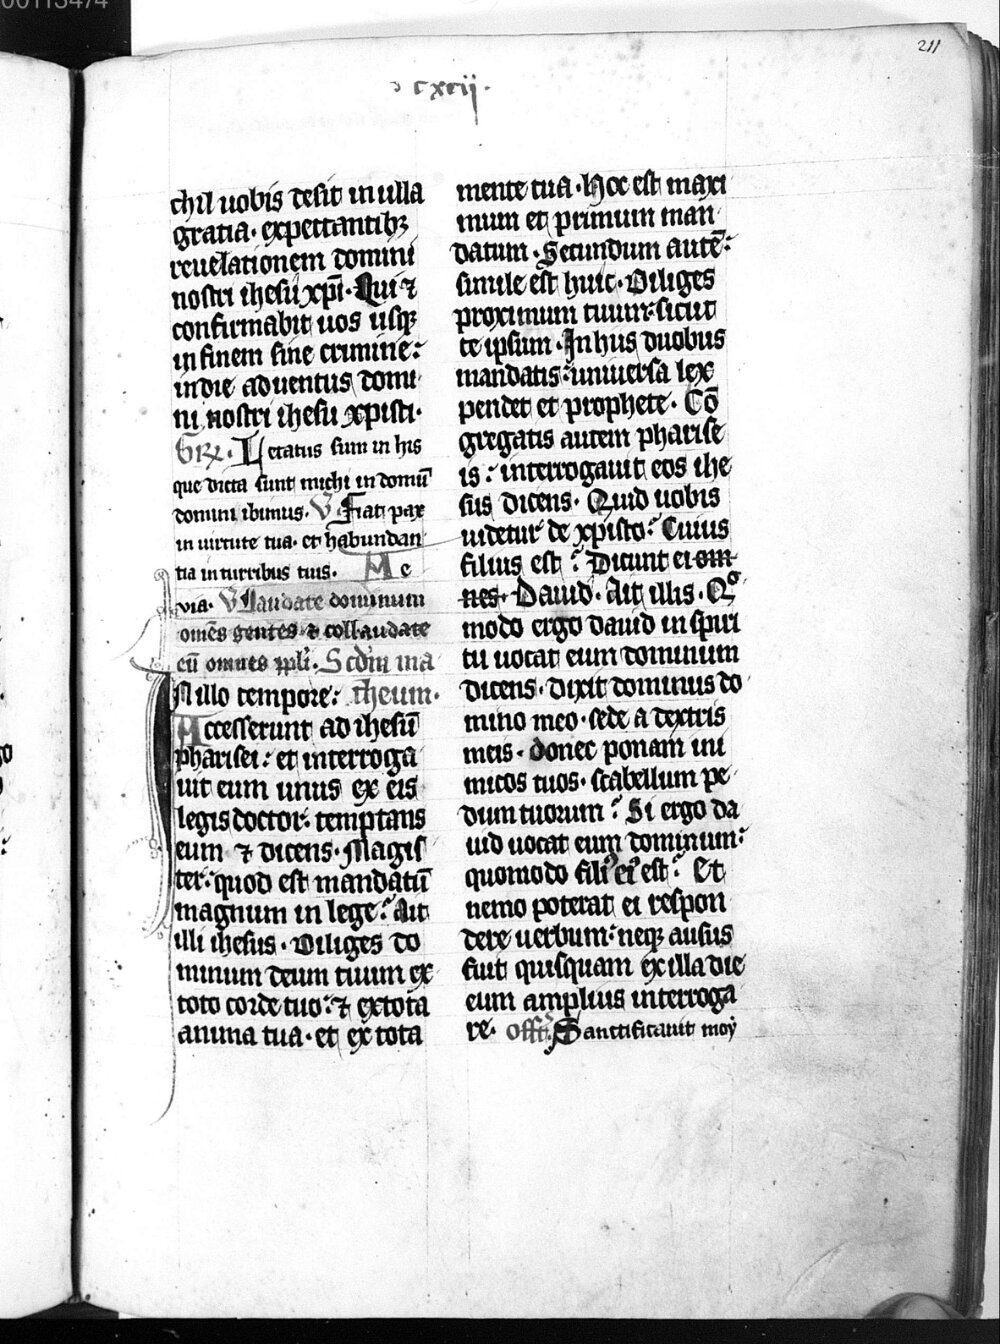 00113474
211
cxcij.
chil uobis desit in ulla
gratia. expectantibꝫ
reuelationem domini
nostri ihesu xp̄i. Qui ⁊
confirmabit uos usqꝫ
in finem sine crimine:
in die aduentus domi
ni nostri ihesu xpisti.
GR̃. Letatus sum in his
que dicta sunt michi in domū
domini ibimus. V̄. Fiat pax
in uirtute tua. et habundan
tia in turribus tuis. Alle
via. V̄ Laudate dominum
omēs gentes ⁊ collaudate
eū omnes ppl̄i. Scdm̄ ma
In illo tempore: theum.
Accesserunt ad ihesū
pharisei: et interroga
uit eum unus ex eis
legis doctor: temptans
eum ⁊ dicens. Magis
ter: quod est mandatū
magnum in lege? Ait
illi ihesus. Diliges do
minum deum tuum ex
toto corde tuo: ⁊ ex tota
anima tua. et ex tota
mente tua. Hoc est maxi
mum et primum man
datum. Secundum autē:
simile est huic. Diliges
proximum tuum: sicut
te ipsum. In hus duobus
mandatis: uniuersa lex
pendet et prophete. Cō
gregatis autem pharise
is: interrogauit eos ihe
sus dicens. Quid uobis
uidetur de xpisto? Cuius
filius est? Dicunt ei om
nes. Dauid. Ait illis. Qͦ
modo ergo dauid in spiri
tu uocat eum dominum
dicens. dixit dominus do
mino meo. sede a dextris
meis. donec ponam ini
micos tuos. scabellum pe
dum tuorum? Si ergo da
uid uocat eum dominum:
quomodo filiꝰ eiꝰ est? Et
nemo poterat ei respon
dere uerbum: neqꝫ ausus
fuit quisquam ex illa die
eum amplius interroga
re. offr̄. Sanctificauit moy